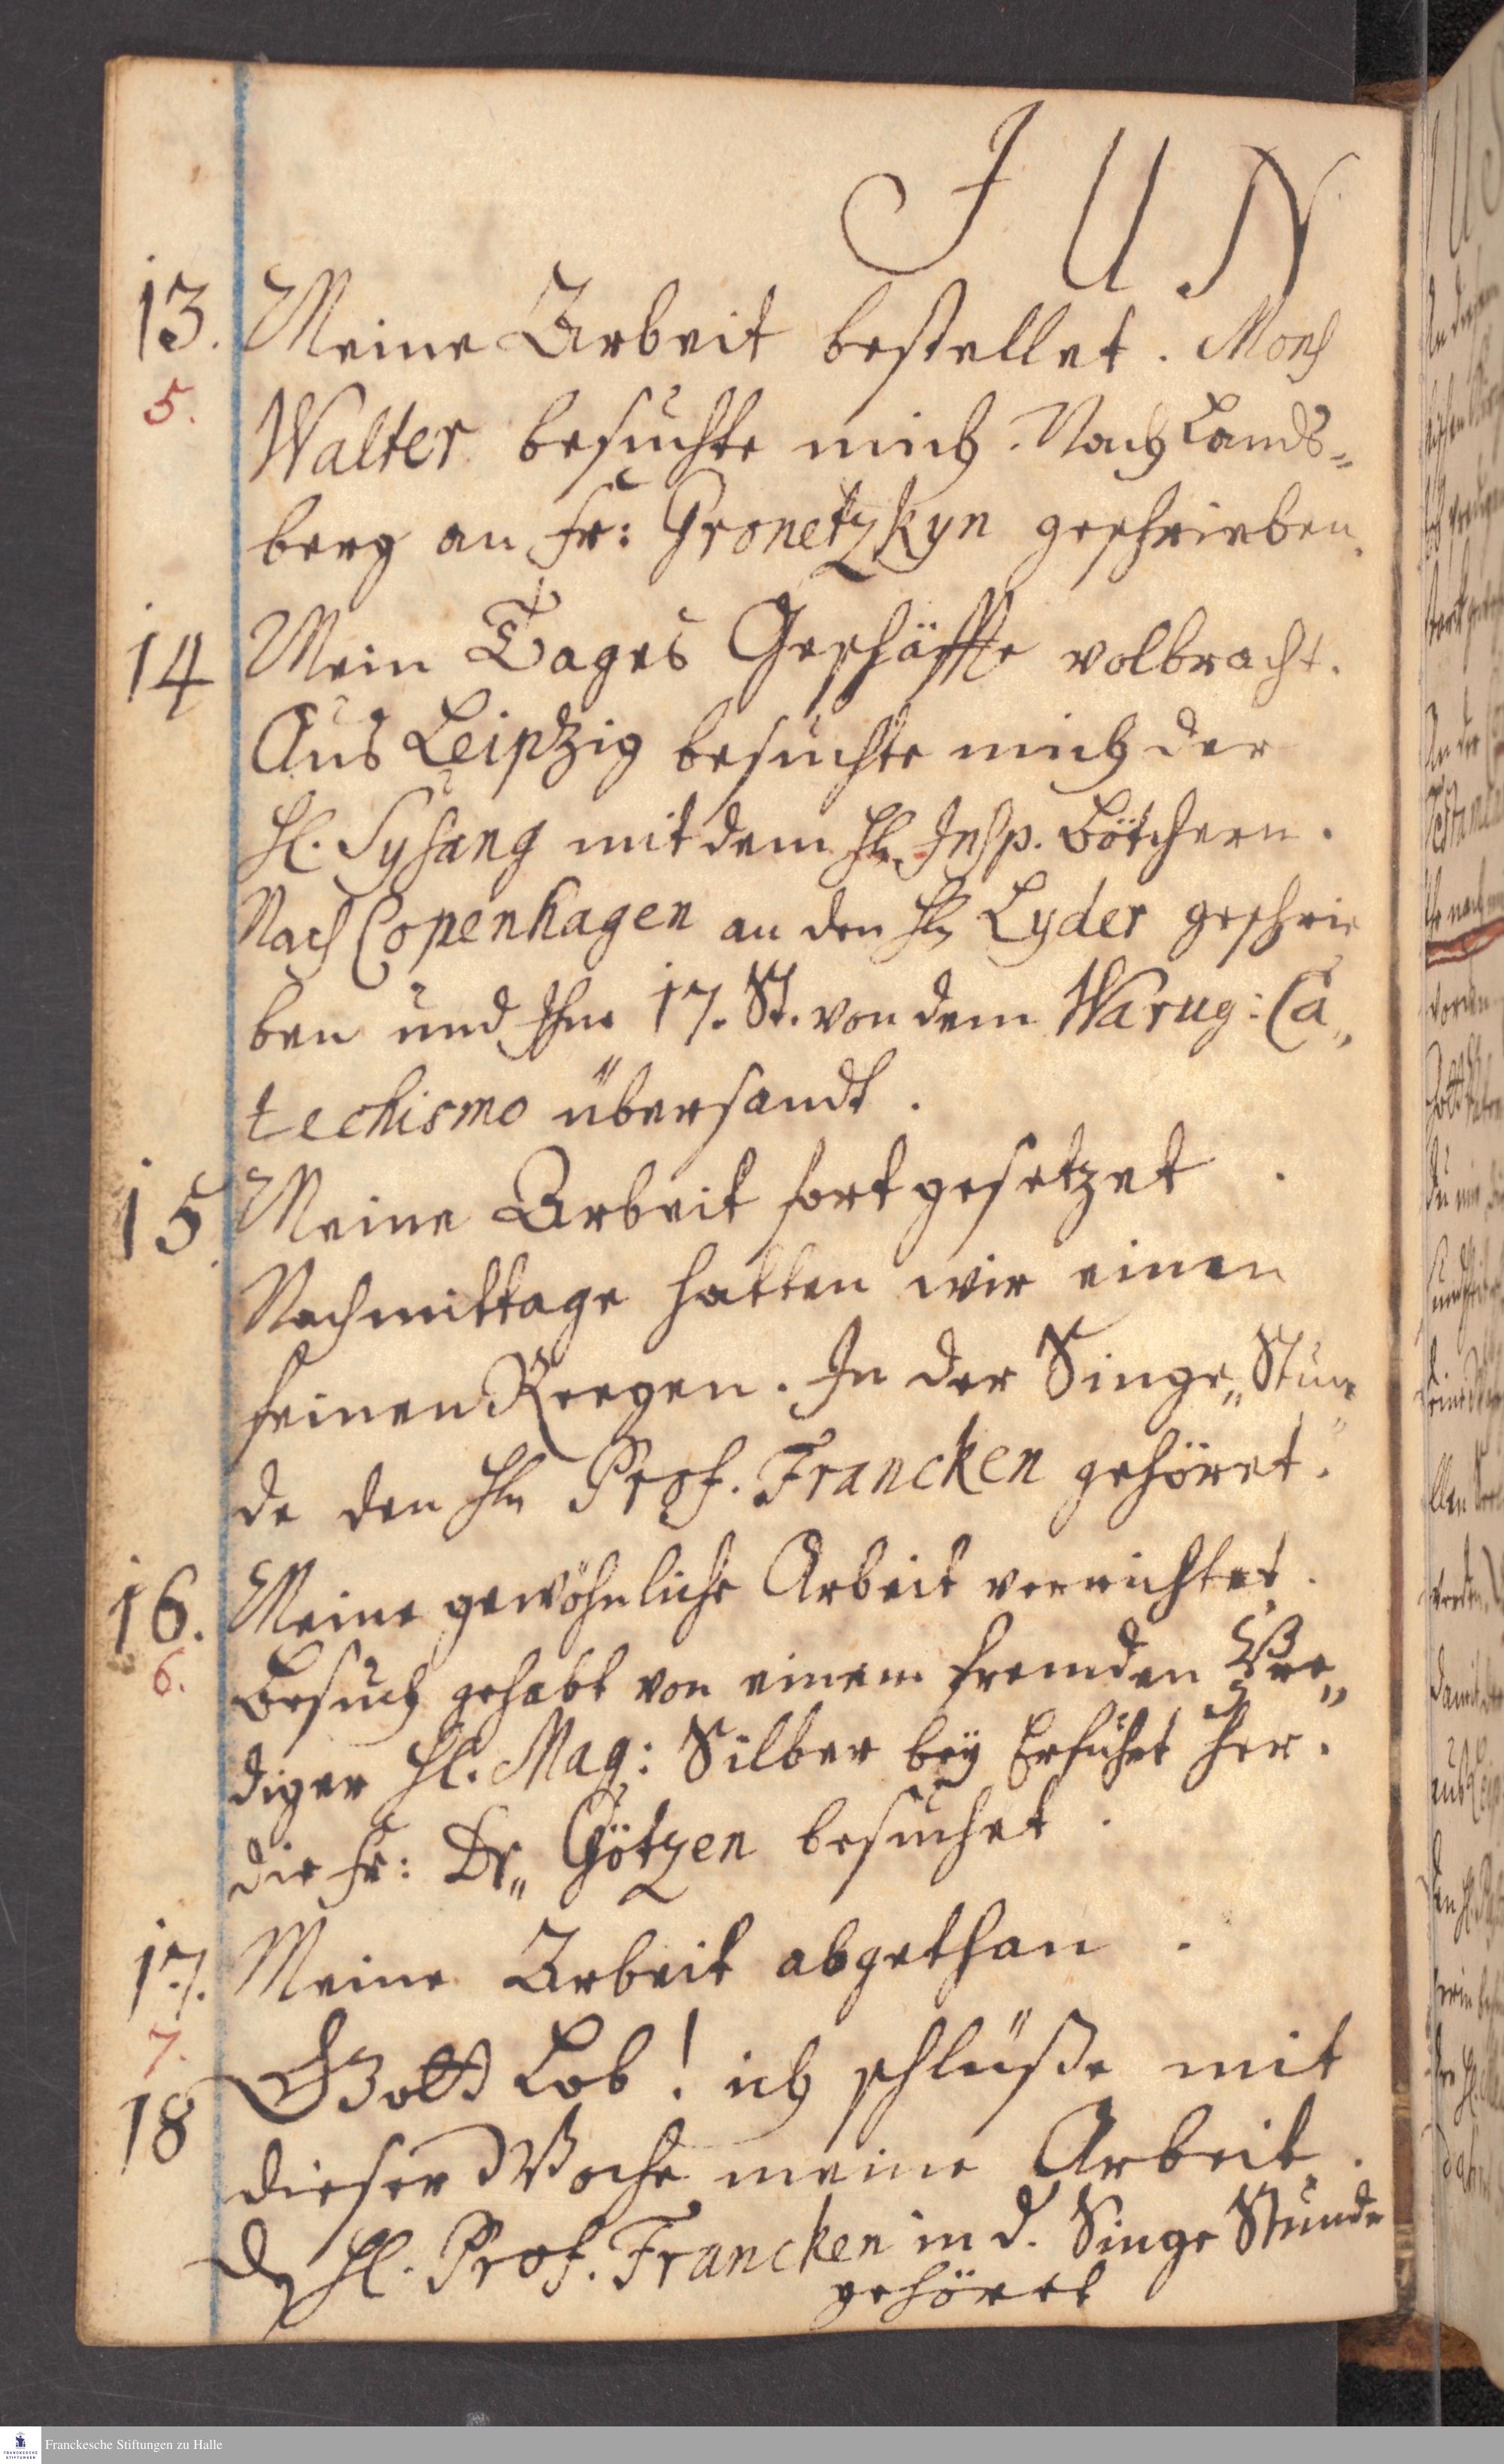 JUN
13. Meine Arbeit bestellet. Mons
5. Walter besuchte mich. Nach Lands„
berg an Fr: Gronetzkyn geschrieben.
14 Mein Tages Geschäffte volbracht.
Aus Leipzig besuchte mich der
Hl. Syhang mit dem Hln Insp. Bötchern.
Nach Copenhagen an den Hln Lyder geschrie
ben und Ihm 17. St. von dem Warug: Ca„
techismo übersandt.
15. Meine Arbeit fortgesetzet.
Nachmittage hatten wir einen
feinen Reegen. In der Singe„Stun„
de den Hln Prof. Francken gehöret.
16. Meine gewöhnliche Arbeit verrichtet.
6. Besuch gehabt von einem fremden Pre„
diger Hl. Mag: Silber bey Erfuhrt her.
die Fr: Dr„ Götzen besuchet.
17. Meine Arbeit abgethan.
7.
18 Gott Lob! ich schlüße mit
dieser Woche meine Arbeit.
Hl. Prof. Francken in d. Singe Stunde
gehöret
Franckesche Stiftungen zu Halle